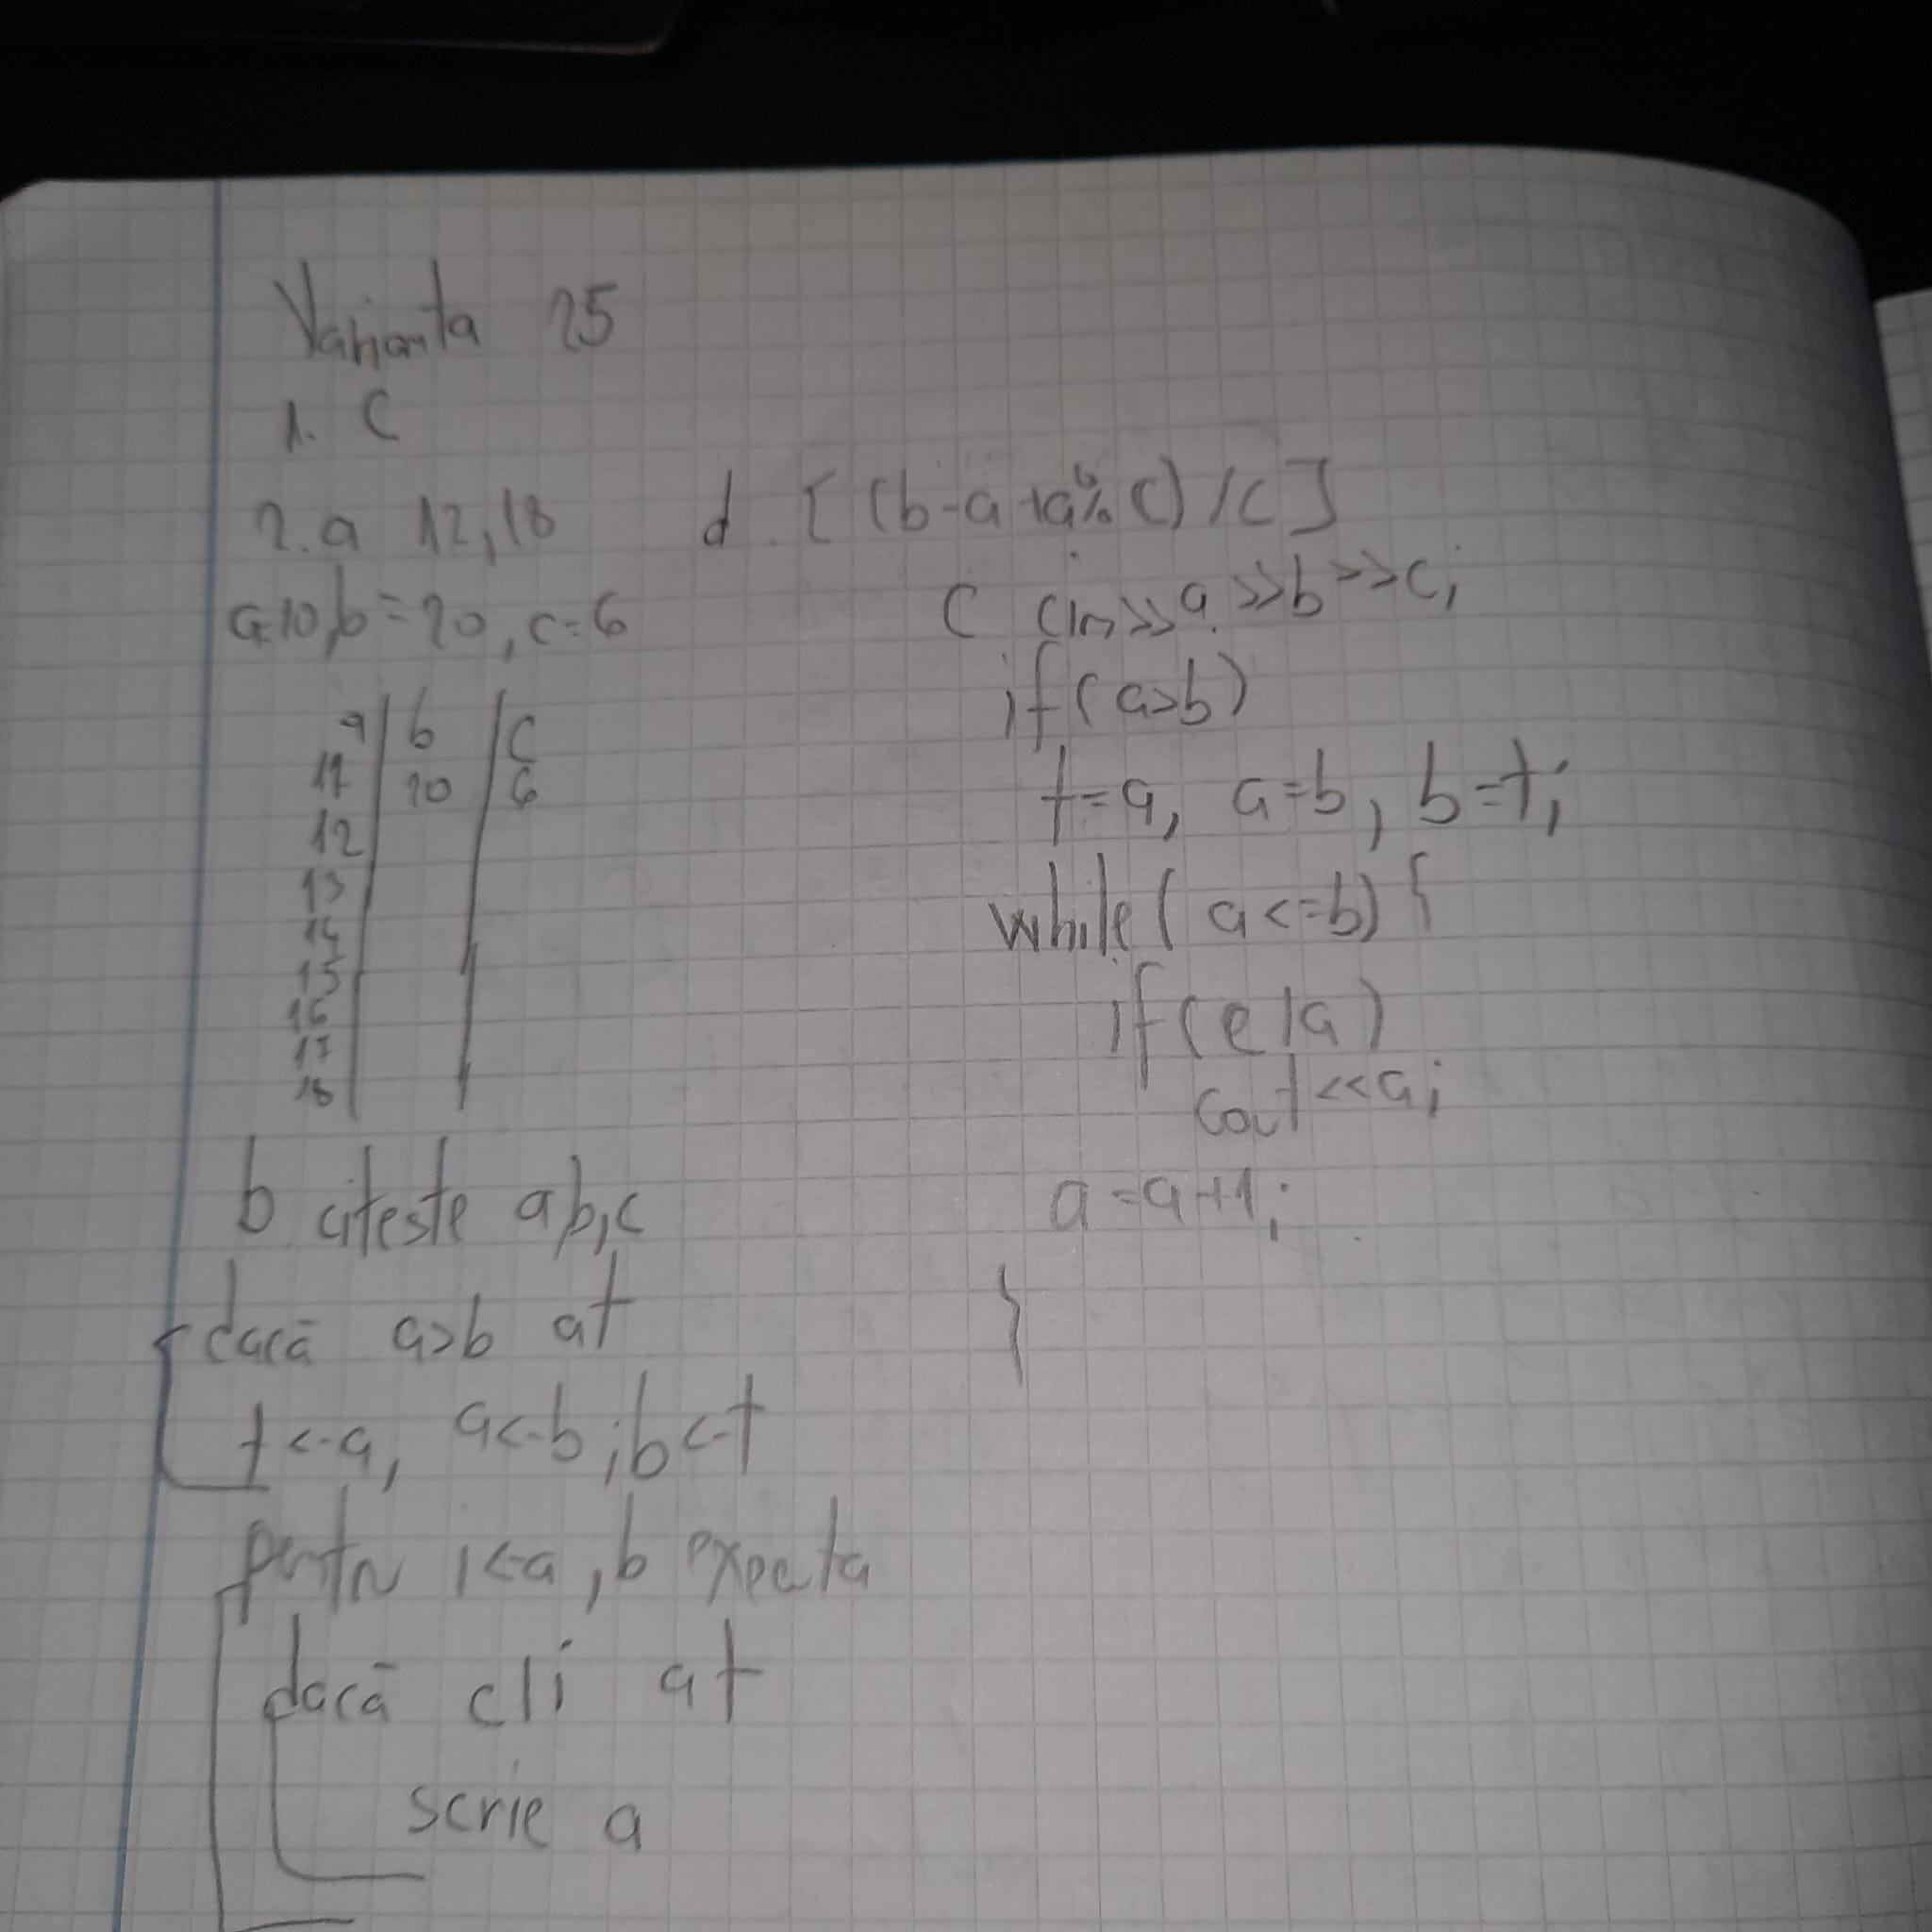 Varianta 25
1. C
2. a 12, 18
a=10, b=20, c=6
a | b | c
11 | 20 | 6
12
13
14
15
16
17
18
b citeste a, b, c
dacă a>b at
t<-a, a<-b; b<-t
pentru i<-a, b executa
dacă c|i at
scrie a
d. [(b-a+a%c)/c]
C cin>>a>>b>>c;
if(a>b)
t=a, a=b, b=t;
while(a<=b){
if(c|a)
cout<<a;
a=a+1;
}